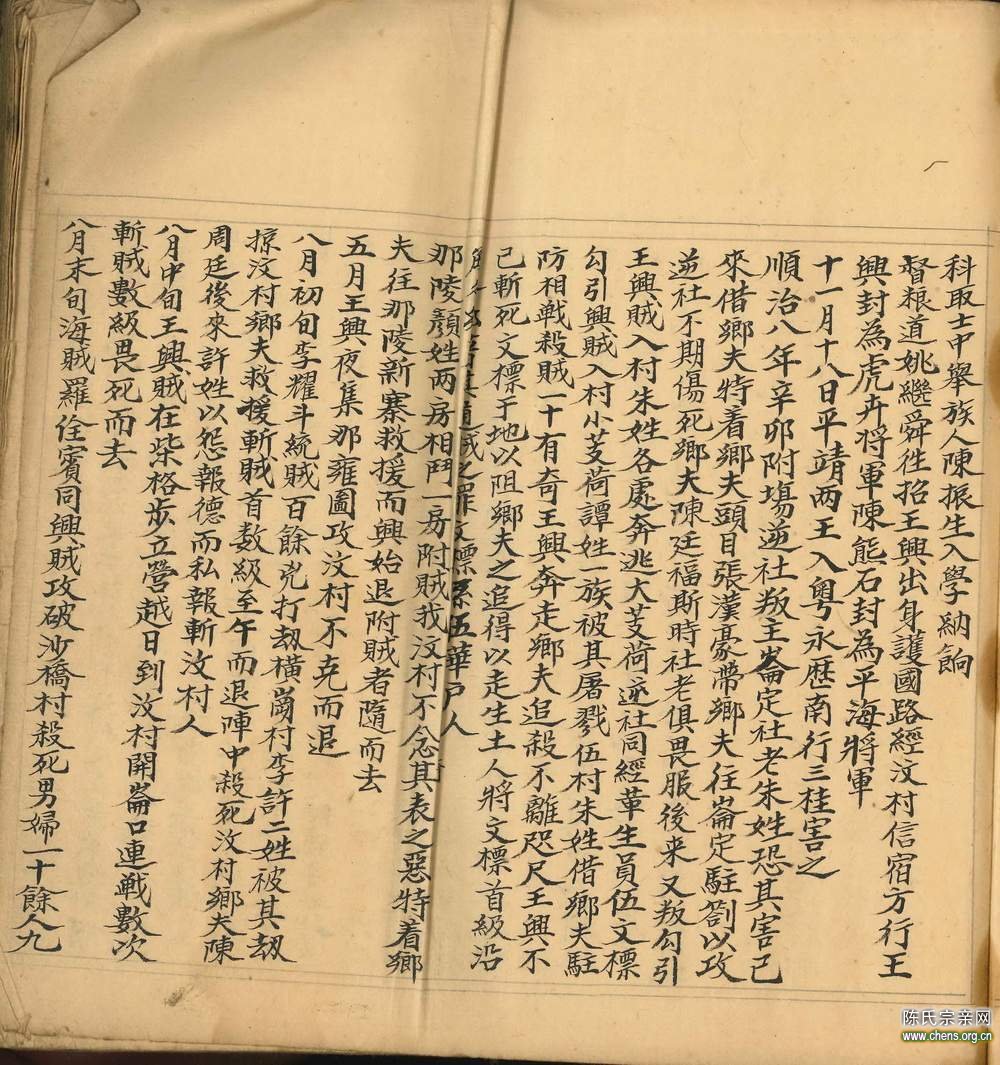 科取士中舉族人陳振生入學納餉
督粮道姚繼舜徃招王興出身護國路經汶村信宿方行王
興封為虎卉將軍陳熊石封為平海將軍
十一月十八日平靖两王入粤永歷南行三桂害之
順治八年辛卯附塲逆社叛主崙定社老朱姓恐其害己
來借鄉夫特着鄉夫頭目張漢豪帶鄉夫往崙定駐劄以攻
逆社不期傷死鄉夫陳廷福斯時社老俱畏服後来又叛勾引
王興賊入村朱姓各處奔逃大芰荷逆社同經華生員伍文標
勾引興賊入村小芰荷譚姓一族被其屠戮伍村朱姓借鄉夫駐
防相戦殺賊一十有奇王興奔走鄉夫追殺不離咫尺王興不
已斬死文標于地以阻鄉夫之追得以走生土人將文標首級沿
之罪文標系伍華戶人
那陵顏姓两房相鬥一房附賊我汶村不念其表之惡特着鄉
夫往那陵新寨救援而興始退附賊者隨而去
五月王興夜集那雍圖攻汶村不克而退
八月初旬李耀斗統賊百餘兇打刼橫崗村李許二姓被其刼
掠汶村鄉夫救援斬賊首数級至午而退陣中殺死汶村鄉夫陳
周廷後來許姓以怨報德而私報斬汶村人
八月中旬王興賊在柴榙㞮立營越日到汶村開崙口連戦數次
斬賊數級畏死而去
八月末旬海賊羅佺賓同興賊攻破沙橋村殺死男婦一十餘人九
陈氏宗亲网
www.chens.org.cn